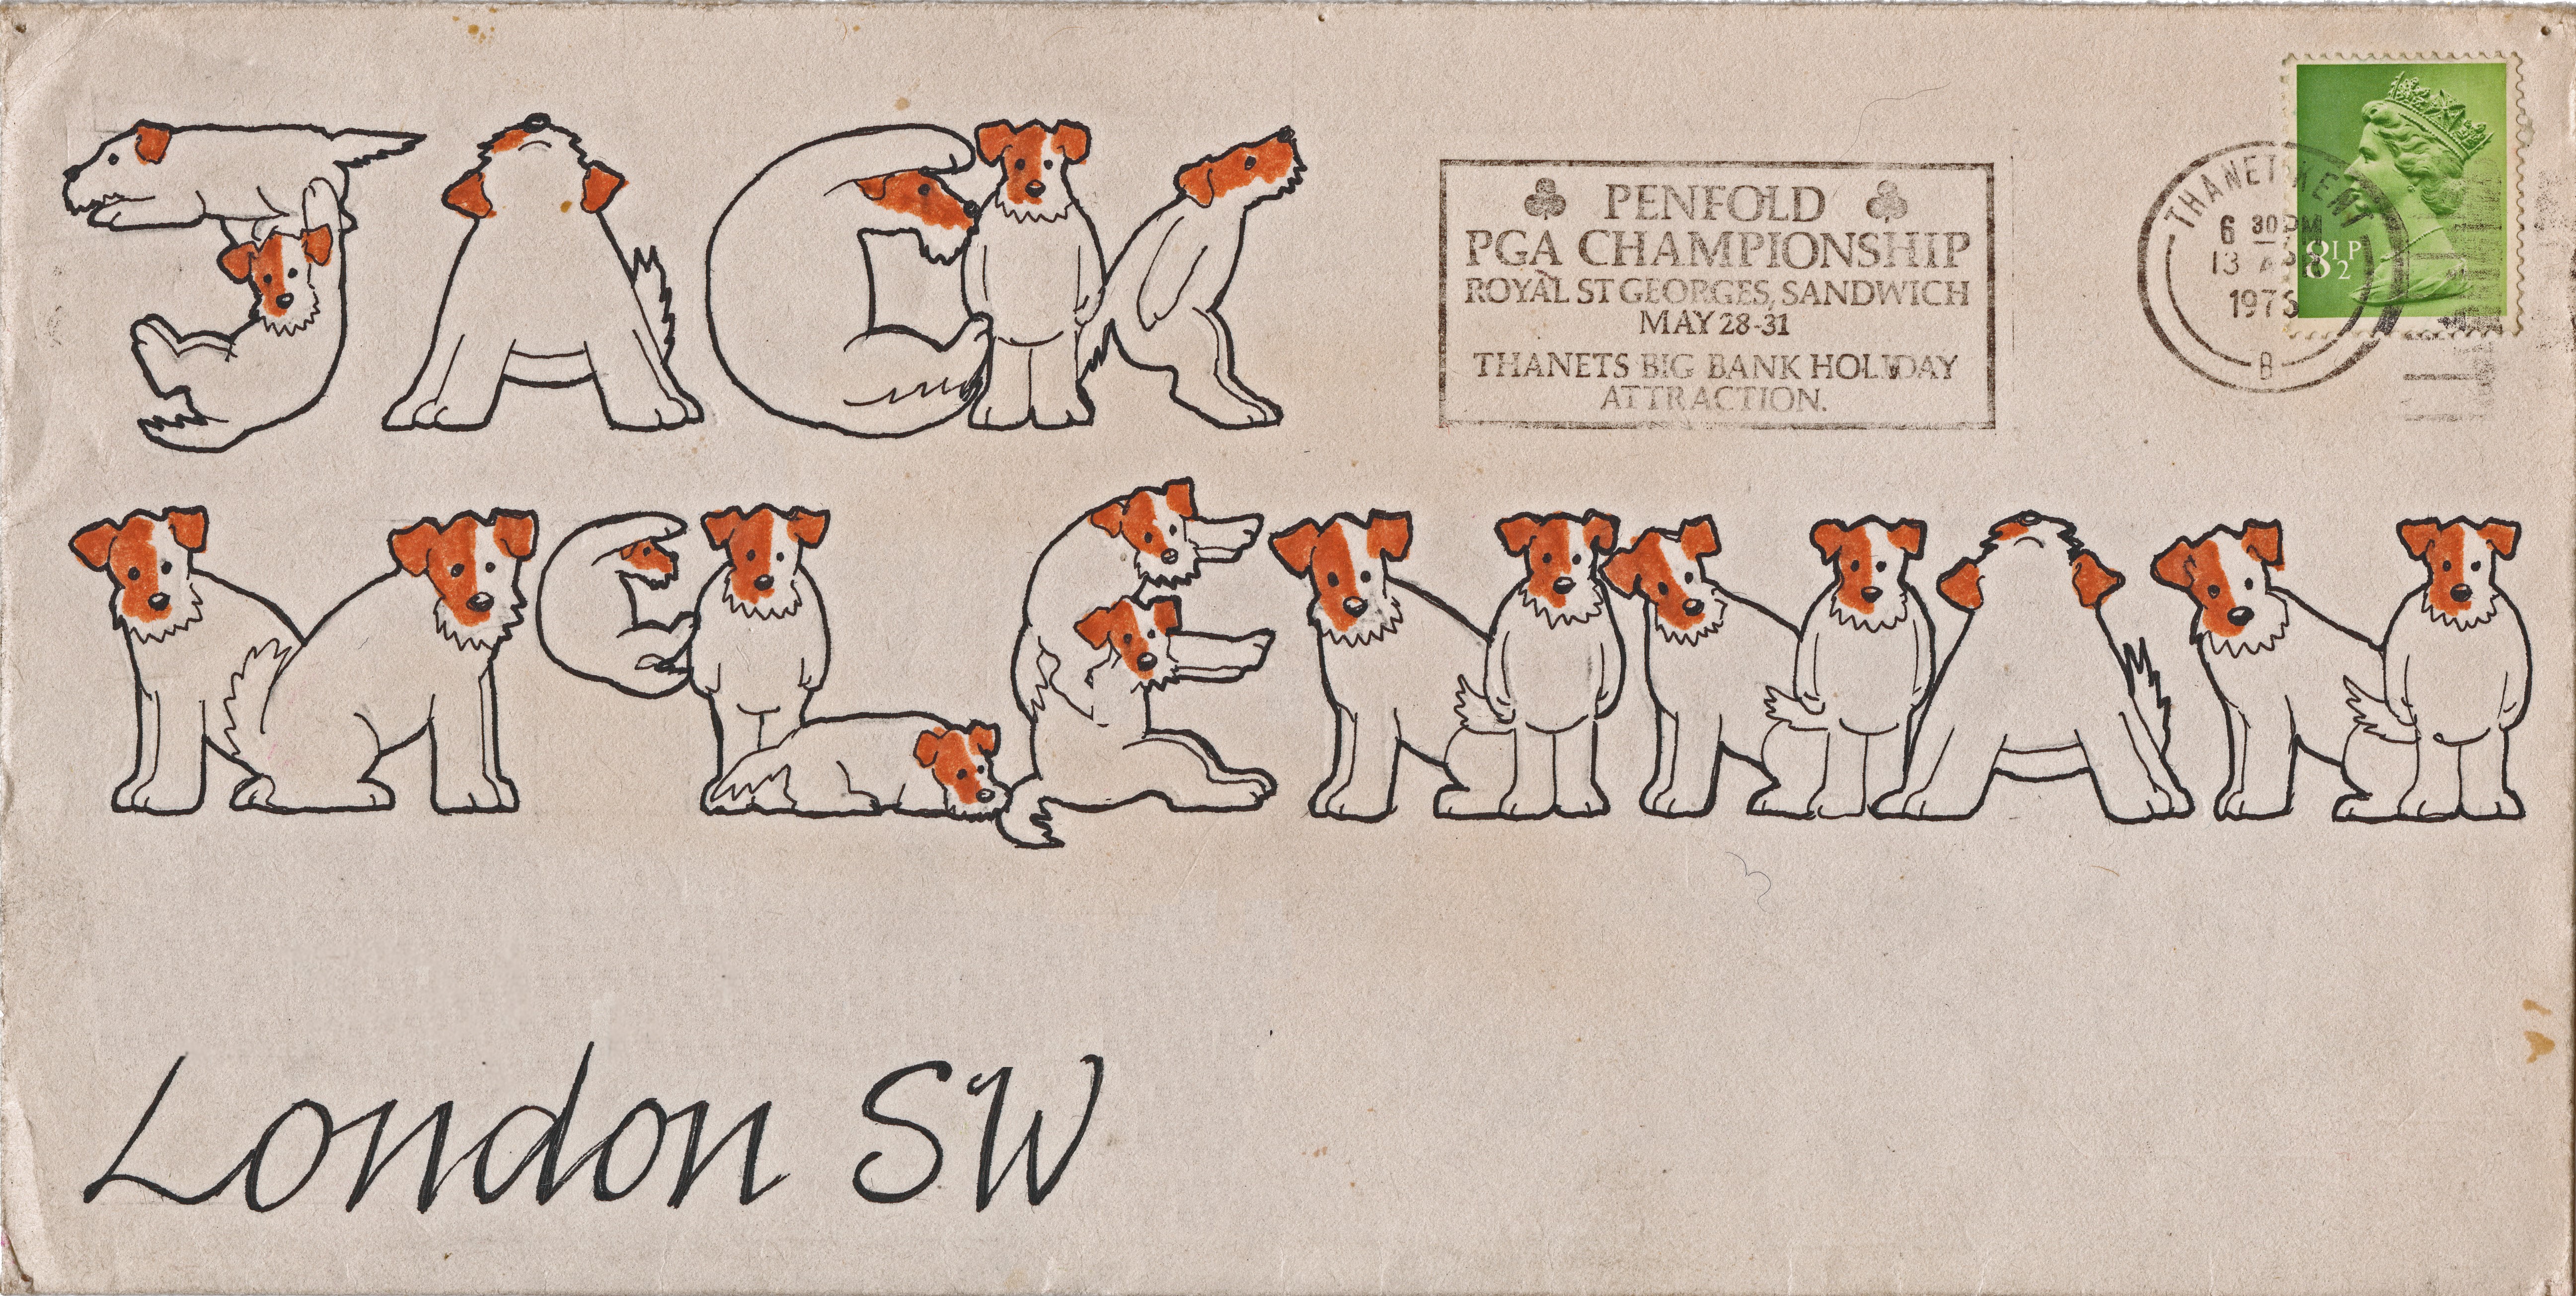 JACK
McLENNAN
London SW
PENFOLD
PGA CHAMPIONSHIP
ROYAL ST GEORGES, SANDWICH
MAY 28-31
THANETS BIG BANK HOLIDAY
ATTRACTION.
THANET KENT
6 30PM
13
1976
B
8½P